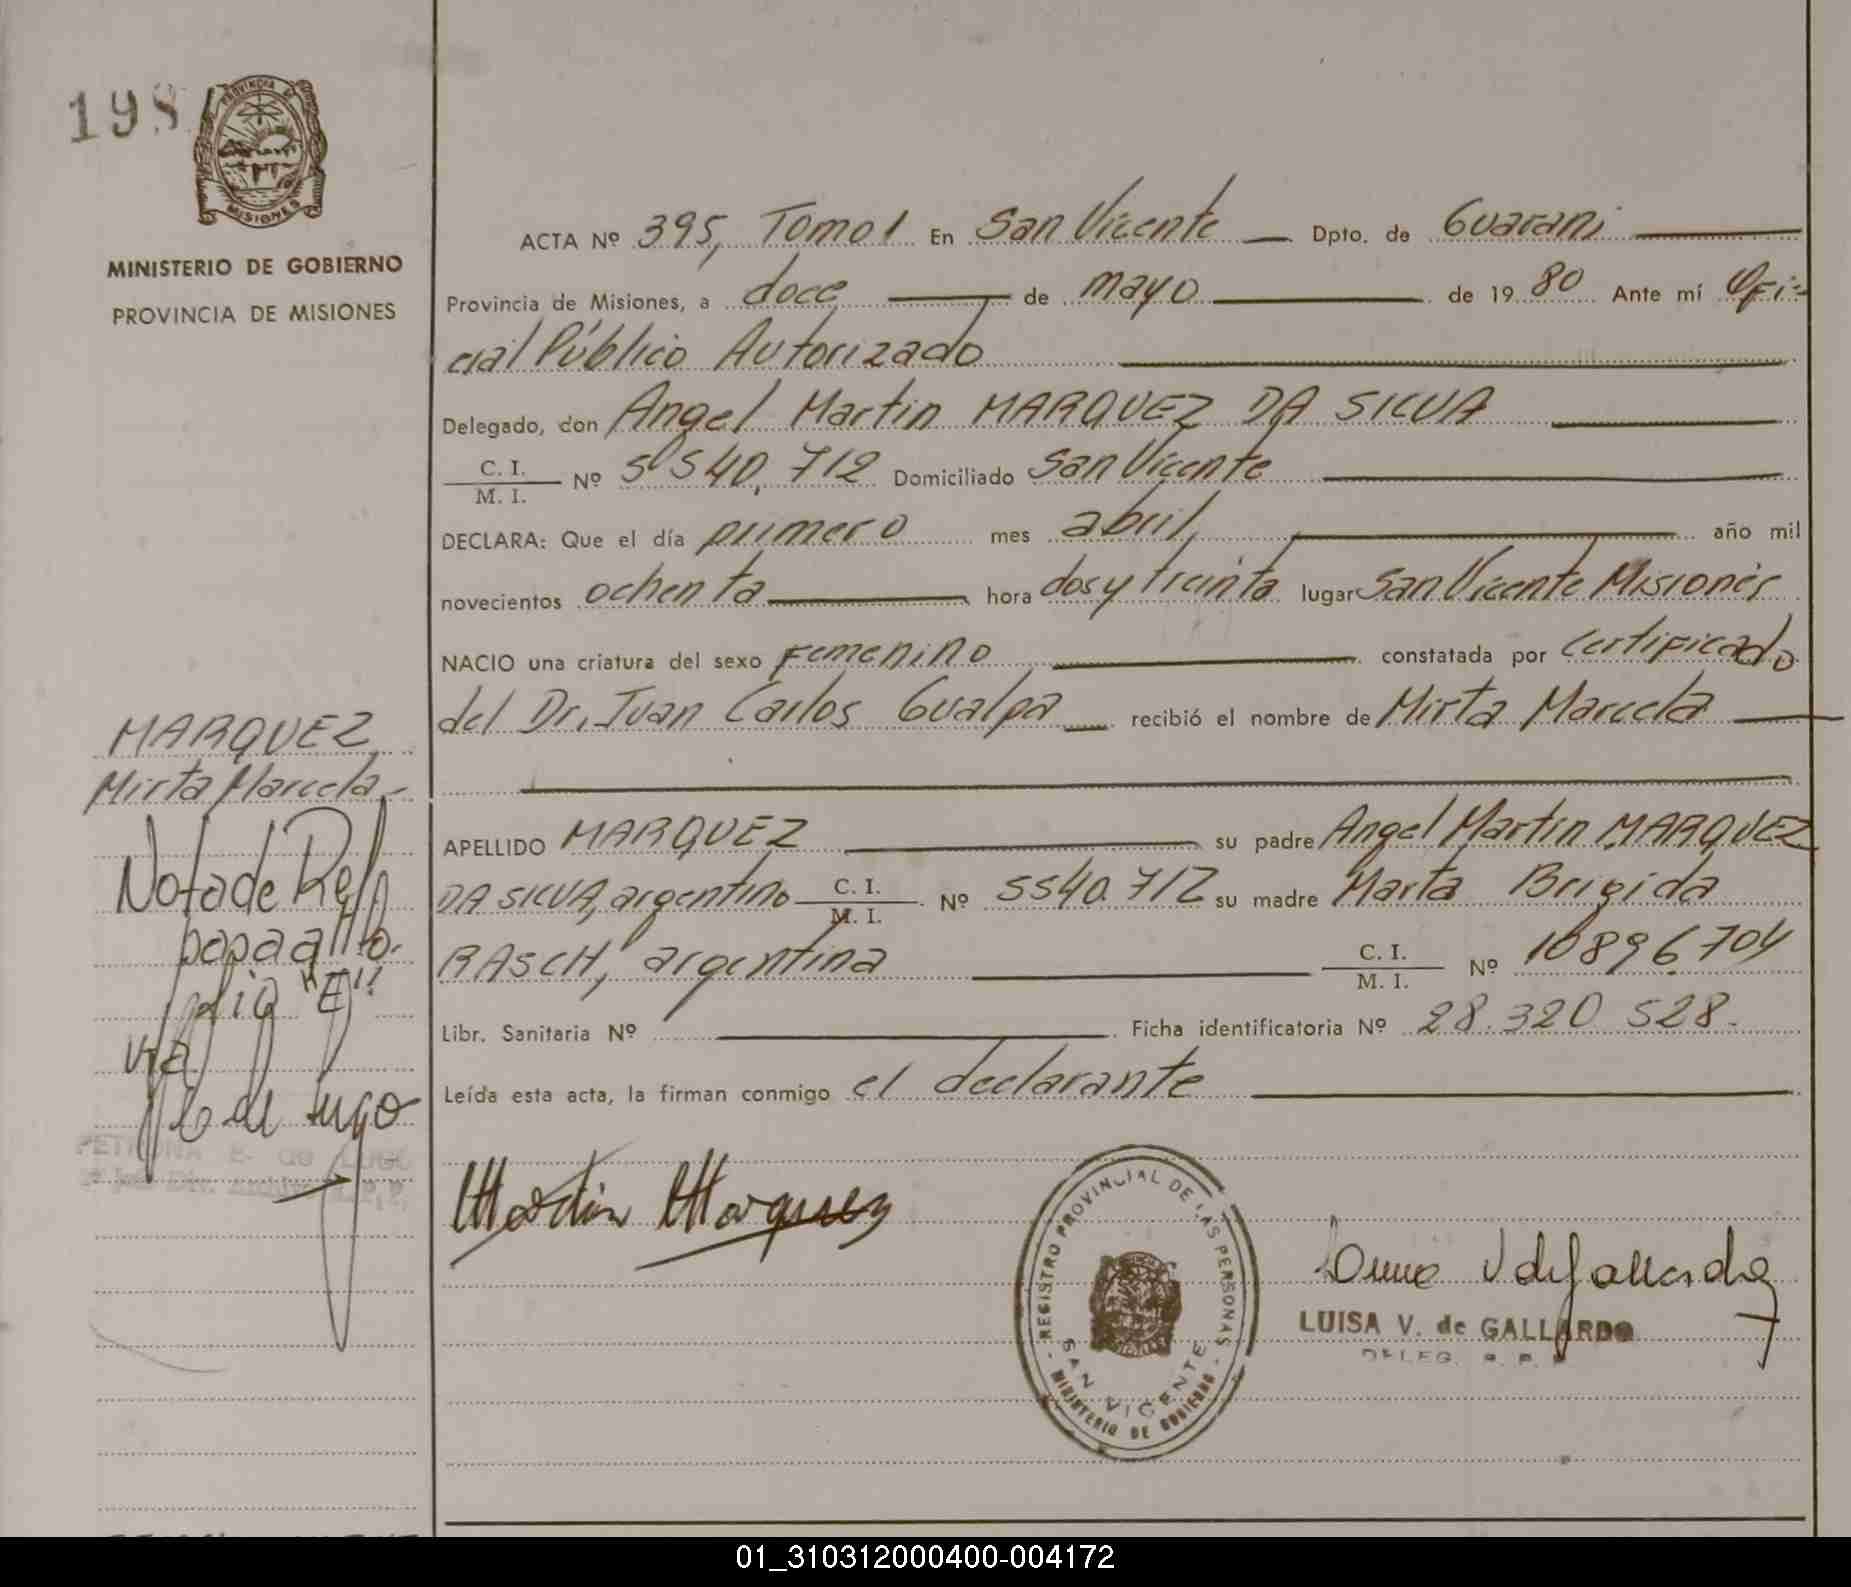 198
PROVINCIA DE
MISIONES
MINISTERIO DE GOBIERNO
PROVINCIA DE MISIONES
ACTA Nº 395, Tomo I En San Vicente Dpto. de Guarani
Provincia de Misiones, a doce de mayo de 19 80 Ante mí Ofi-
cial Público Autorizado
Delegado, don Angel Martin MARQUEZ DA SILVA
C. I.
M. I. Nº 5540.712 Domiciliado San Vicente
DECLARA: Que el día primero mes abril, año mil
novecientos ochenta hora dos y treinta lugar San Vicente Misiones
NACIO una criatura del sexo Femenino constatada por Certificado
del Dr. Juan Carlos Gualpa recibió el nombre de Mirta Marcela
APELLIDO MARQUEZ su padre Angel Martin MARQUEZ
DA SILVA, argentino C. I.
M. I. Nº 5540.712 su madre Marta Brigida
RASCH, argentina C. I.
M. I. Nº 10896704
Libr. Sanitaria Nº Ficha identificatoria Nº 28.320 528.
Leída esta acta, la firman conmigo el declarante
MARQUEZ
Mirta Marcela
Nota de Ref.
"E"
de Lugo
PETRONA E. de LUGO
Martin Marquez
REGISTRO PROVINCIAL DE LAS PERSONAS
SAN VICENTE
MINISTERIO DE GOBIERNO
V de Gallardo
LUISA V. de GALLARDO
DELEG. R. P.
01_310312000400-004172